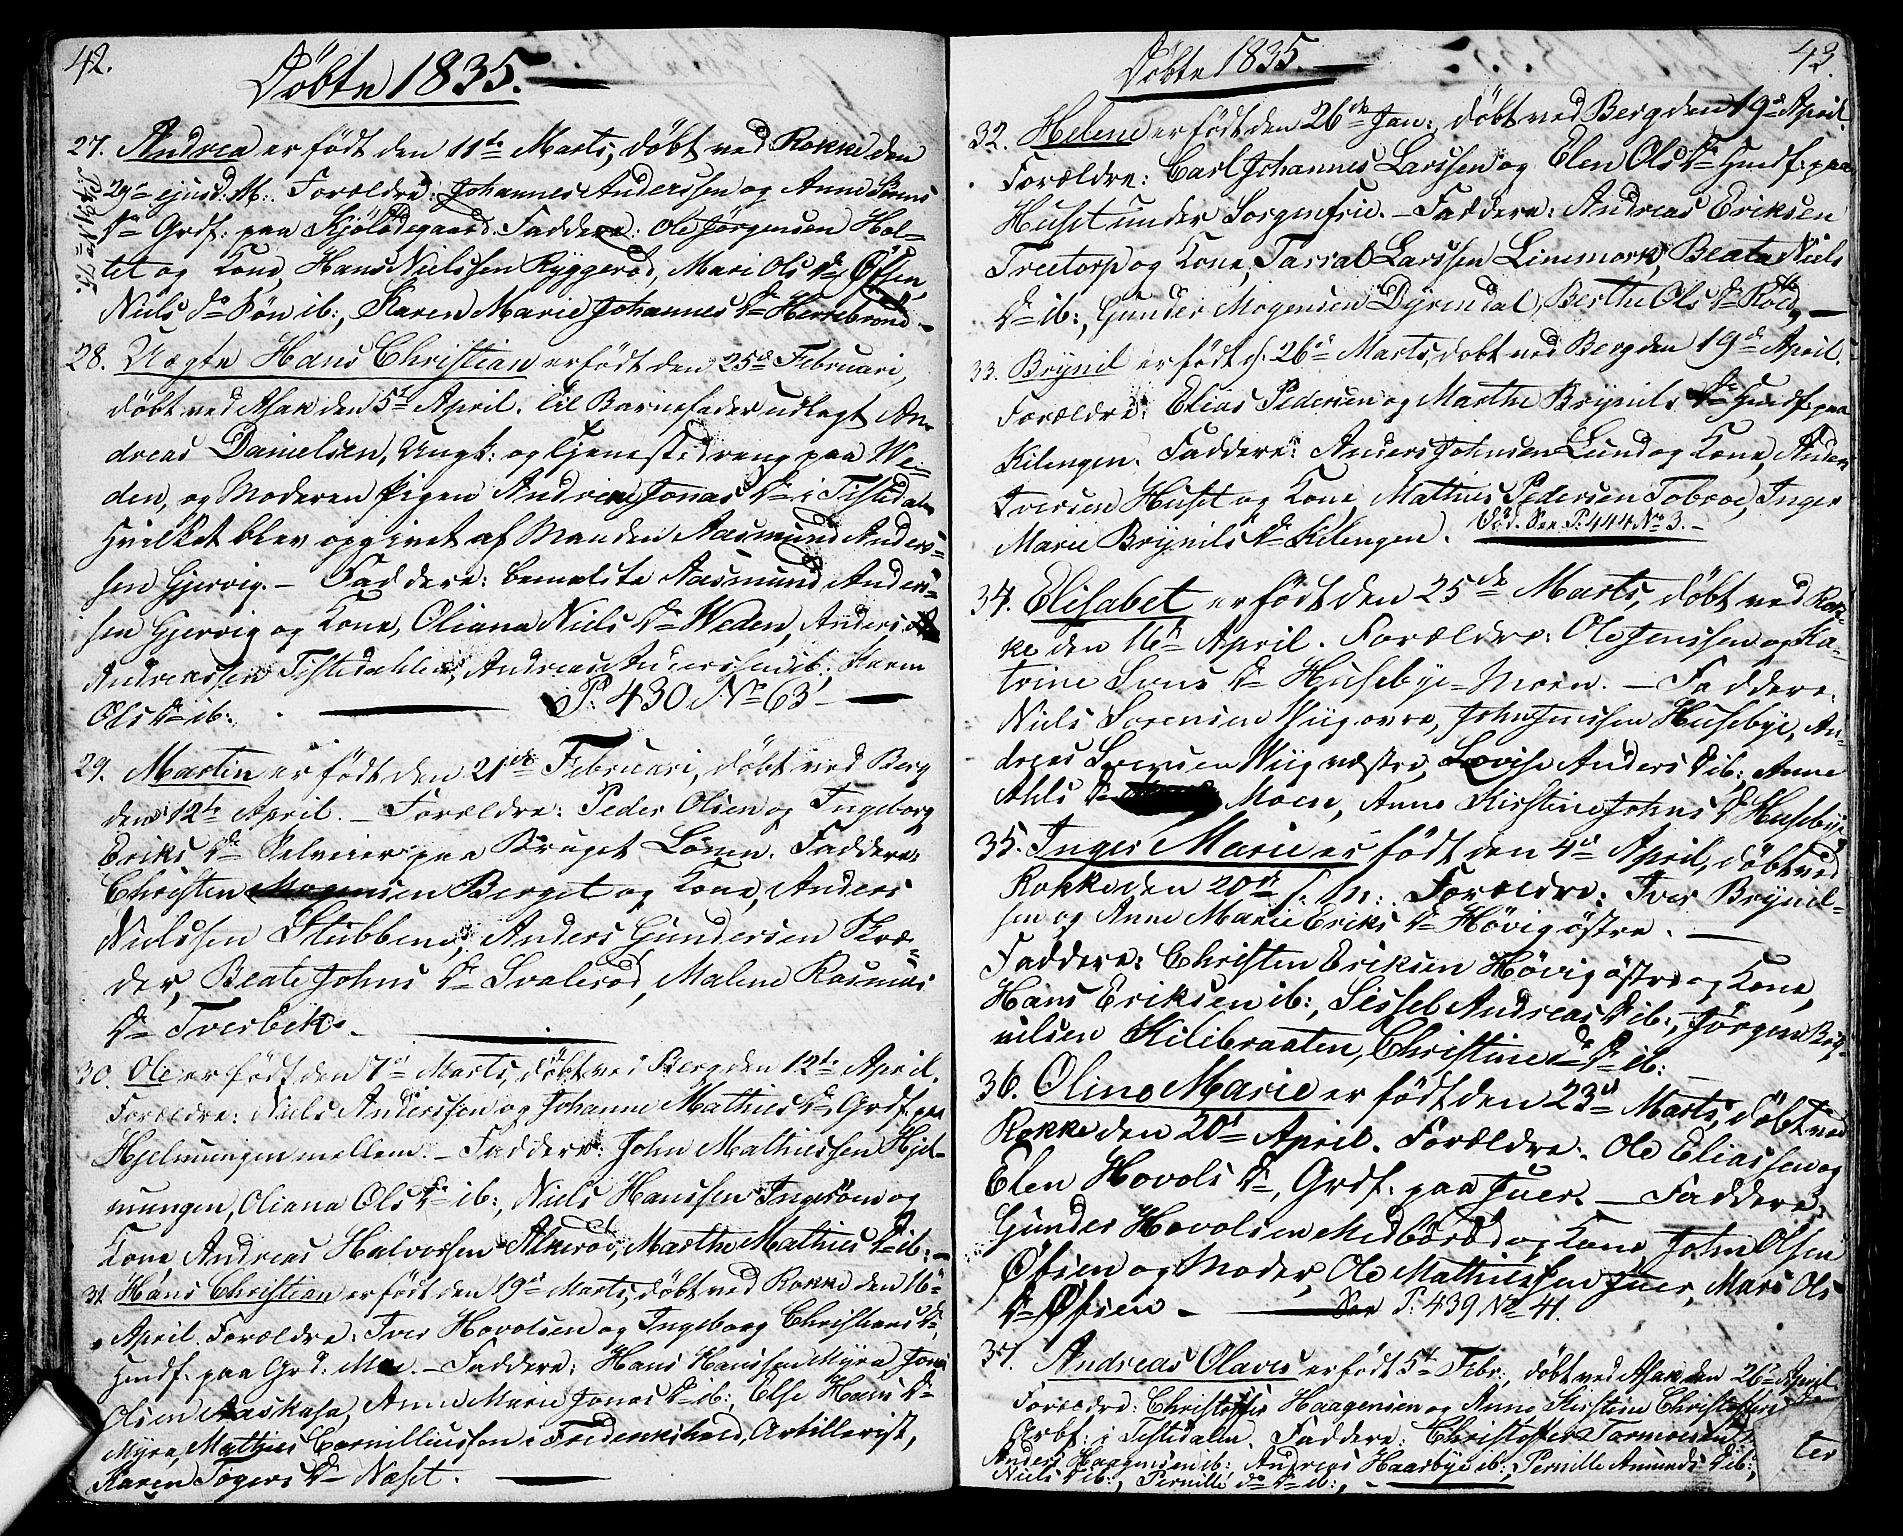 42.
Döbte 1835.
27. Andrea er födt den 11te Marts, döbt ved Rokke den
29de ejusd: M:. Forældre: Johannes Anderssen og Anne
Dr Grdf: paa Kjölödegaard. Faddere: Ole Jørgensen Hol-
tet og Kone, Hans Nielssen Ryggeröd, Mari Ols Dr Öfsen,
Niels do Sön ib:, Karen Marie Johannes Dr Herrebrönd -
28. Uægte Hans Christian er födt den 25de Februari,
döbt ved Asak den 5te April. Til Barnefader udlagt An-
dreas Danielsen, Ungk: og Tjenestedreng paa We-
den, og Moderen Pigen Andrine Jonas Dr i Tistedalen
Hvilket blev opgivet af Manden Aasmund Anders-
sen Gjervig. - Faddere: bemeldte Aasmund Anders-
sen Gjervig og Kone, Oliana Niels Dr Weden, Anders
Andreassen Tistedahlen, Andreas Anderssen ib:, Karen
Ols Dr ib: P: 430 No 63 -
29. Martin er födt den 21de Februari, döbt ved Berg
den 12te April. - Forældre: Peder Olsen og Ingeborg
Eriks Dr Selveier paa Bruget Lören. Faddere:
Christen Mogensen Berget og Kone, Anders
Nielssen Stubbene, Anders Gundersen Skræ-
der, Beate Johns Dr Svaleröd, Malene Rasmus
Dr Tverbek. -
30. Ole er födt den 7de Marts, döbt ved Berg den 12te April.
Forældre: Niels Anderssen og Johanne Mathies Dr, Grdf: paa
Hjelmungen mellem. - Faddere: John Mathiessen Hjel-
mungen, Oliana Ols Dr ib:, Niels Hanssen Ingeröen og
Kone, Andreas Halvorsen Alkeröd, Marthe Mathies Dr ib: -
31. Hans Christian er födt den 19de Marts, döbt ved Rokke den 16de
April. Forældre: Iver Hovolsen og Ingeborg Christians Dr,
Husf: paa Grd: Moe. - Faddere: Hans Hanssen Myra, Jonas
Olsen Aaskasa, Anne Marie Jonas Dr ib:, Else Hans Dr
Myra, Mathis Cornilliussen i Frederikshald, Artillerist,
Karen Togers Dr Næset. -
43.
Döbte 1835. -
32. Helene er födt den 26de Jan:, döbt ved Berg den 19de April.
Forældre: Carl Johannes Larssen og Elen Ols Dr Husf: paa
Huset under Sorgenfrie. - Faddere: Andreas Eriksen
Treetorp og Kone, Tarral Larssen Linnmork, Beata Niels
Dr ib:, Gunder Mogensen Dyrendal, Berthe Ols Dr Röd, -
33. Brynil er födt d: 26de Marts, döbt ved Berg den 19de April.
Forældre: Elias Pedersen og Marthe Brynils Dr Husf: paa
Kilengen. Faddere: Anders Johnsen Lund og Kone, Anders
Iversen Huset og Kone, Mathies Pedersen Tobroe, Inger
Marie Brynils Dr Kilengen. Död. See P: 444 No 3. -
34. Elisabet er födt den 25de Marts, döbt ved Rok-
ke den 16de April. Forældre: Ole Jenssen og Ka-
trine Sörens Dr Husebye-Moen. - Faddere:
Niels Sorensen Wiig övre, John Jenssen Husebye, An-
dreas Sorensen Wiig vestre, Lovise Anders D ib:, Anne
Ahls Dr Moen, Anne Kirstine Johns D Husebye
35. Inger Marie er födt den 4de April, döbt ved
Rokke den 20de s: M:. Forældre: Iver Brynil-
sen og Anne Marie Eriks Dr Hövig östre. -
Faddere: Christen Eriksen Hövig östre og Kone,
Hans Eriksen ib:, Sissel Andreas D ib:, Jørgen Bry-
nilsen Kilebraaten, Christine do Dr ib:
36. Oline Marie er födt den 23de Marts, döbt ved
Rokke den 20de April. Forældre: Ole Eliassen og
Elen Hovols Dr, Grdf: paa Juer. - Faddere:
Gunder Hovolsen Medböröd og Kone, John Olsen
Öfsen og Moder, Ole Mathiessen Juer, Mari Ols
Dr Öfsen - See P: 439 No 41.
37. Andreas Olaves er födt 5te Febr:, döbt ved Asak den 26de April.
Forældre: Christoffer Haagensen og Anne Kirstine Christoffers
Arbf: i Tistedalen. Faddere: Christoffer Tormoesen
Anders Haagensen ib:, Andreas Haarbye ib:, Pernille Amunds D ib:,
Niels D ib:, Pernille do Dr ib:, -
ter